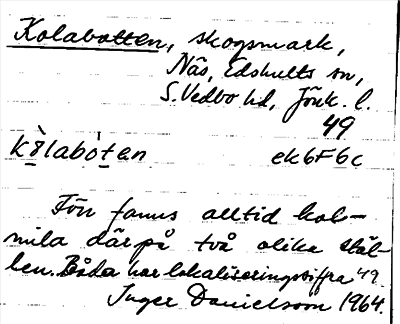 Kolabotten, skogsmark,
Näs, Edshults sn,
S. Vedbo hd, Jönk. l.
49
kòlabót̠en ek6F6c
Förr fanns alltid kol-
mila där på två olika stäl-
len. Båda har lokaliseringssiffra 49.
Inger Danielsson 1964.